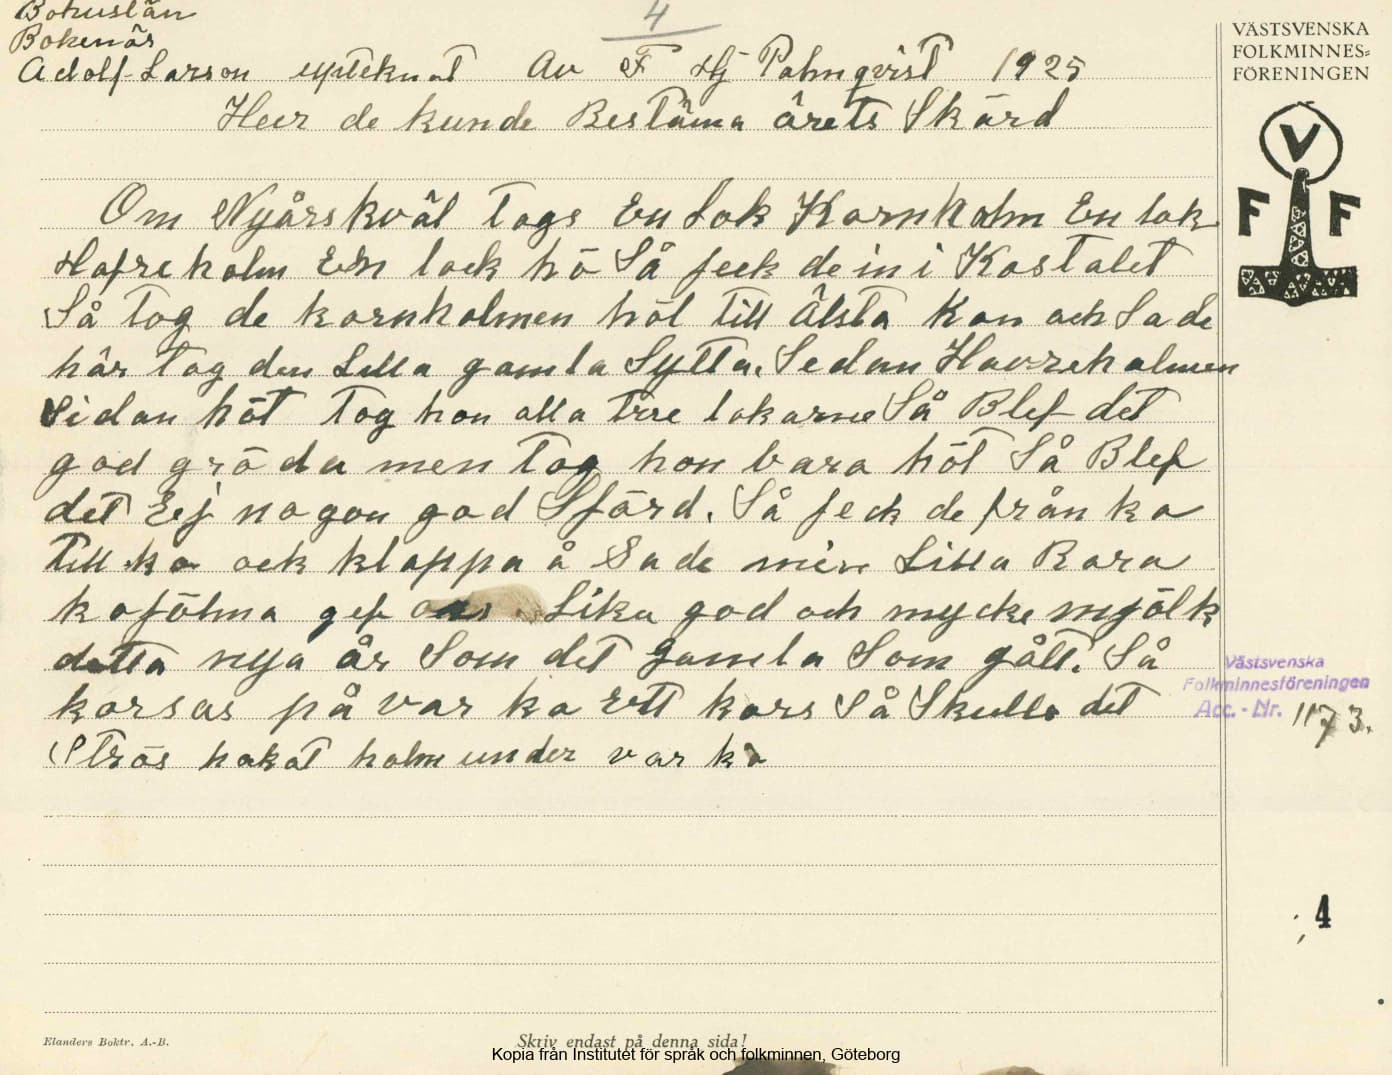 Bohuslän
Bokenäs
4
Adolf Larson upteknat Av F Hj Palmqvist 1925
Heer de kunde Bestäma årets Skörd
Om Nyårskväl togs En Lok Kornholm En lok
Hafreholm Een lock hö Så feck de in i Kostalet
Så tog de kornholmen höl till älsta Kon och Sade
här tag den Lilla gamla Sytta. Sedan Havreholmen
Sidan höt tog hon alla trre lokarne Så Blef det
god gröda men tog hon bara höt Så Blef
det Eej nogon god Sjörd. Så feck de från ko
till ko ock klappa å Sade min Lilla Rara
koföhna gef oss Lika god och mycke mjölk
detta nya år Som det gamla Som gått. Så
korsas på var ko ett kors Så Skulle det
Strös hakat halm under var ko
VÄSTSVENSKA
FOLKMINNES-
FÖRENINGEN
V
F F
Västsvenska
Folkminnesföreningen
Acc. - Nr. 1173.
4
Elanders Boktr. A.-B.
Skriv endast på denna sida!
Kopia från Institutet för språk och folkminnen, Göteborg